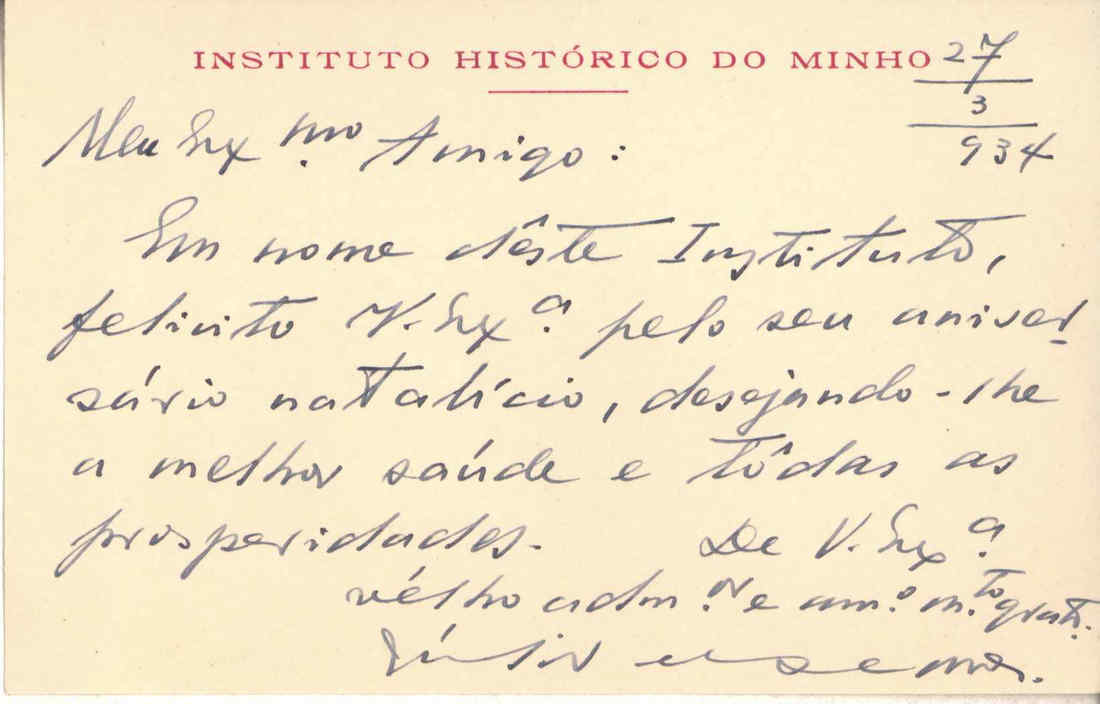 INSTITUTO HISTÓRICO DO MINHO
27
3
934
Meu Exmo Amigo:
Em nome dêste Instituto,
felicito V. Exª pelo seu aniver-
sário natalício, desejando-lhe
a melhor saúde e tôdas as
prosperidades. De V. Exª
vélho adm.or e am.º m.to grato.
Júlio de Lemos.